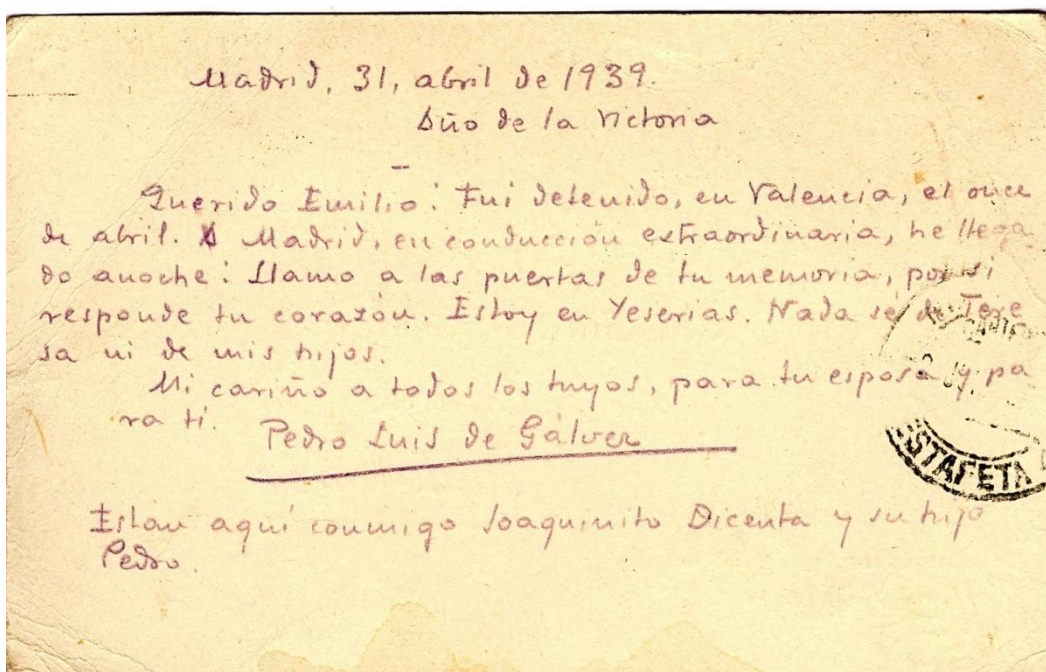 Madrid, 31, abril de 1939.
Año de la Victoria
Querido Emilio: Fui detenido, en Valencia, el once
de abril. A Madrid, en conducción extraordinaria, he llega
do anoche: Llamo a las puertas de tu memoria, por si
responde tu corazón. Estoy en Yeserias. Nada sé de Tere
sa ni de mis hijos.
Mi cariño a todos los tuyos, para tu esposa y pa
ra ti.
Pedro Luis de Gálvez
Están aquí conmigo Joaquinito Dicenta y su hijo
Pedro.
ESTAFETA